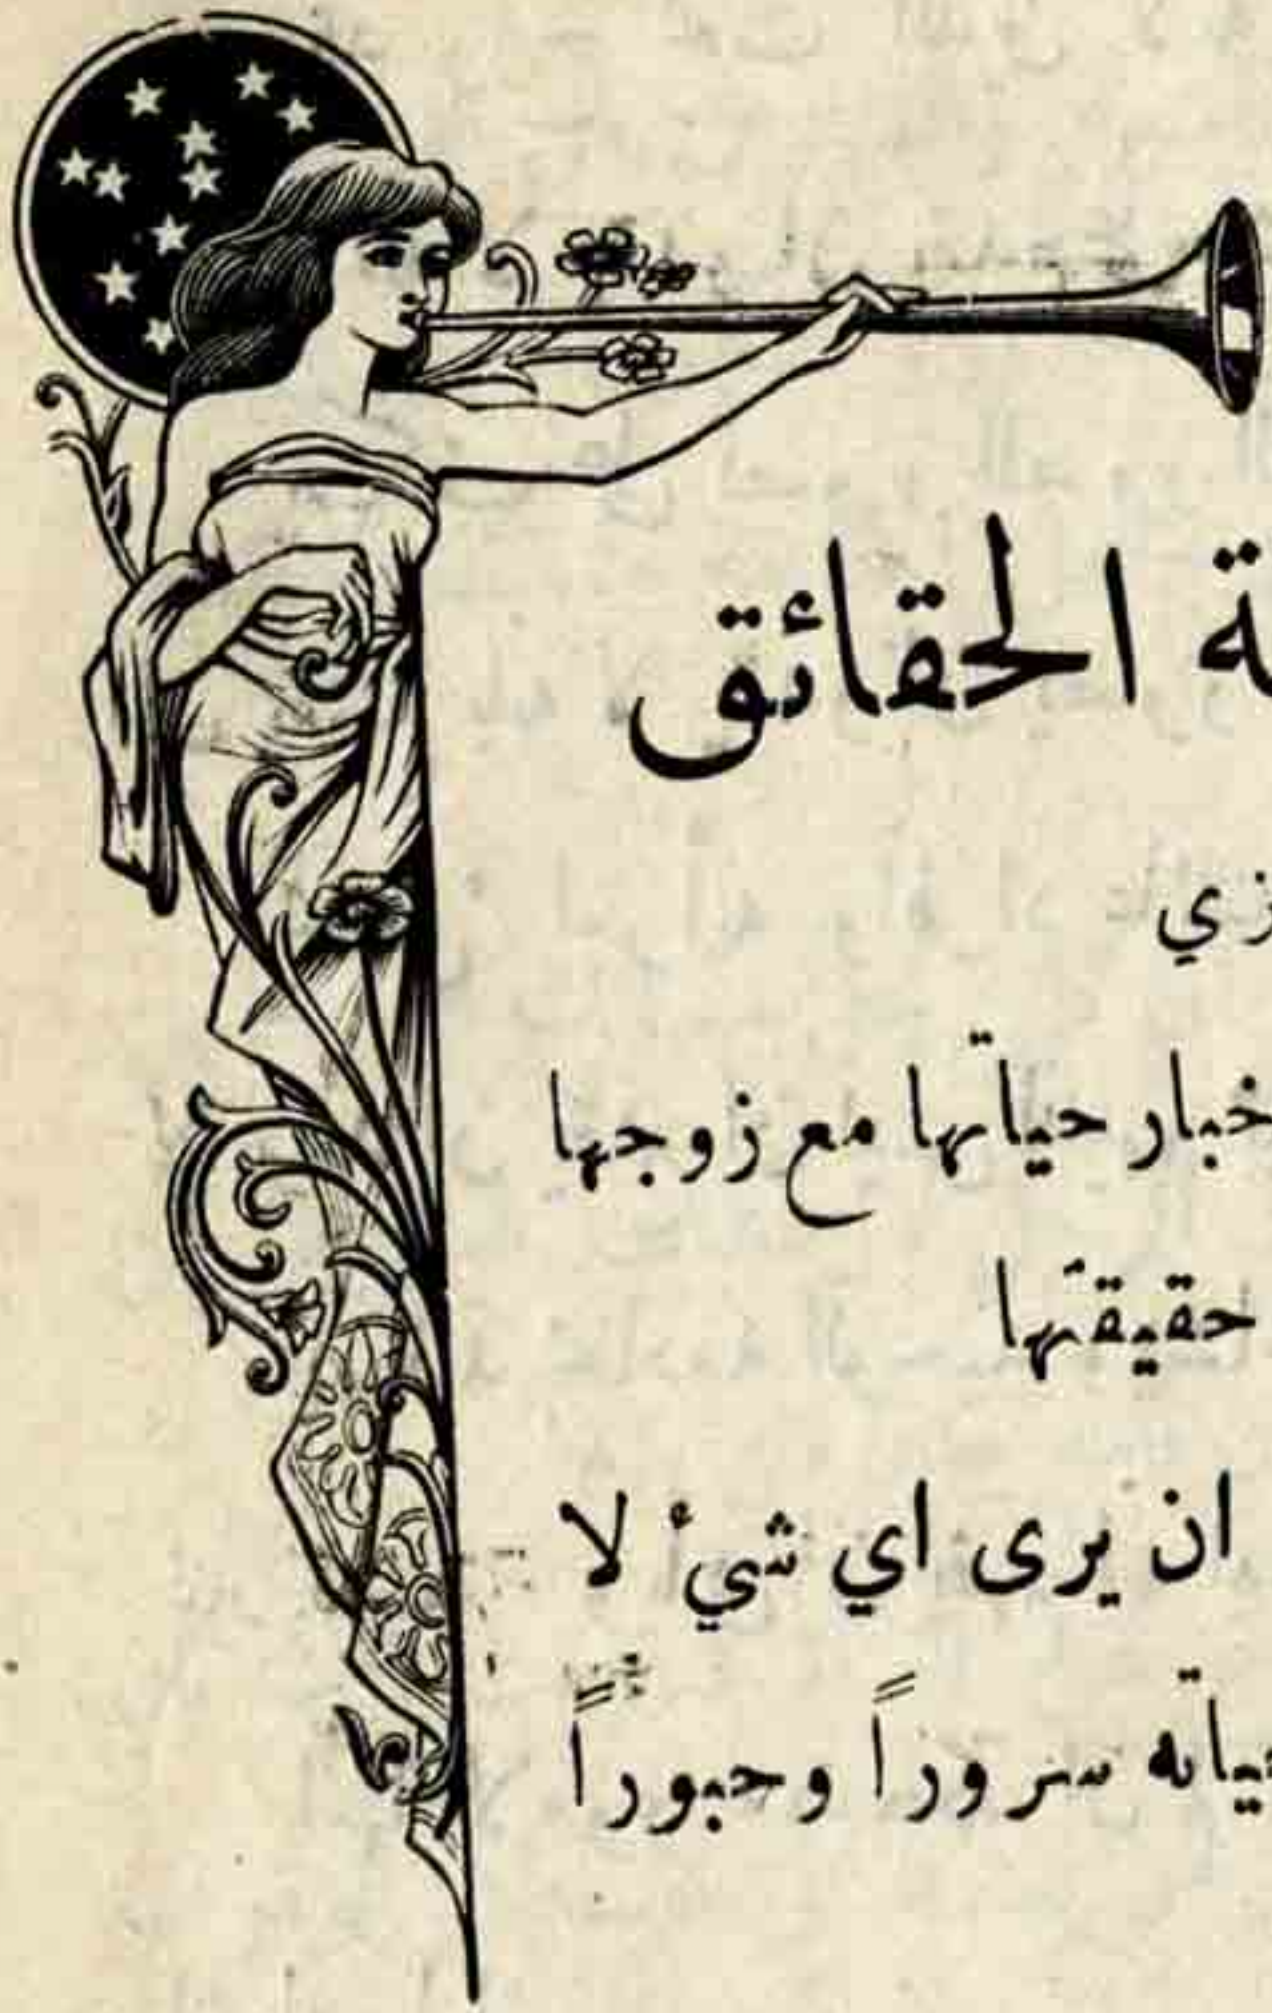 الحقائق
حياتها مع زوجها
حقيقتها
ان يرى اي شيء لا
سروراً وحبوراً